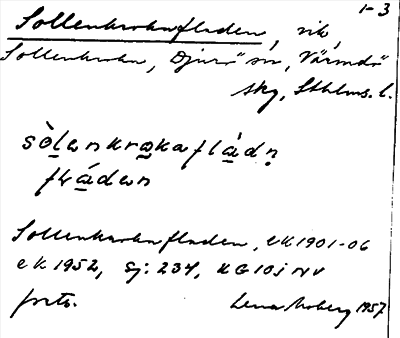 1-3
Sollenkrokafladen, vik,
Sollenkroka, Djurö sn, Värmdö
skg, Sthlms. l.
sòlenkrokaflàdn
flàden
Sollenkrokafladen, ek 1901-06
ek 1952, Sj: 234, KG 10j NV
forts. Lena Moberg 1957